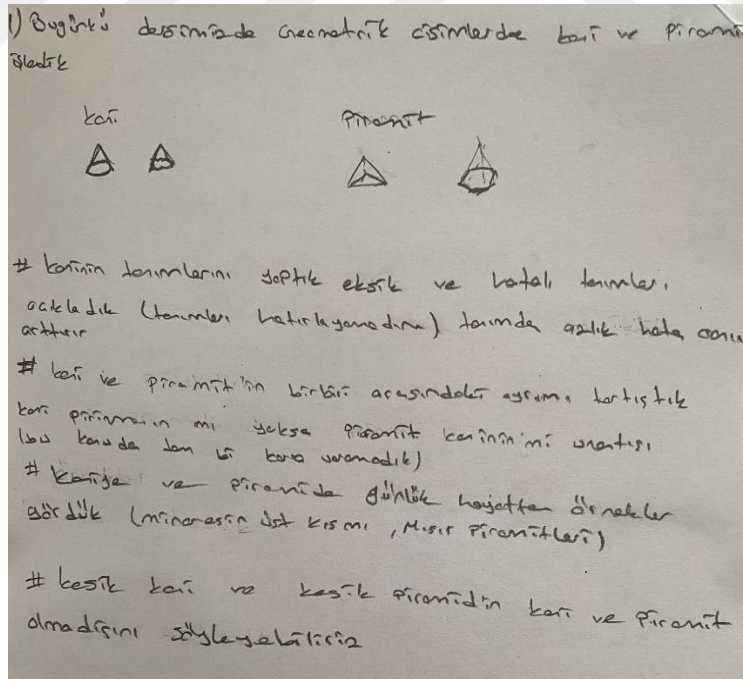 1) Bugünkü dersimizde Geometrik cisimlerden koni ve Piramit
işledik
koni
Piramit
# koninin tanımlarını yaptık eksik ve hatalı tanımları
açıkladık (tanımları hatırlayamadım) tanımda azlık hata oranını
arttırır
# koni ve piramit'in birbiri arasındaki ayrımı tartıştık
koni piramitin mi yoksa piramit koninin mi
(bu konuda tam bi karar veremedik)
# koniye ve piramide günlük hayattan örnekler
gördük (minarenin üst kısmı, Mısır Piramitleri)
# kesik koni ve kesik piramidin koni ve piramit
olmadığını söyleyebiliriz